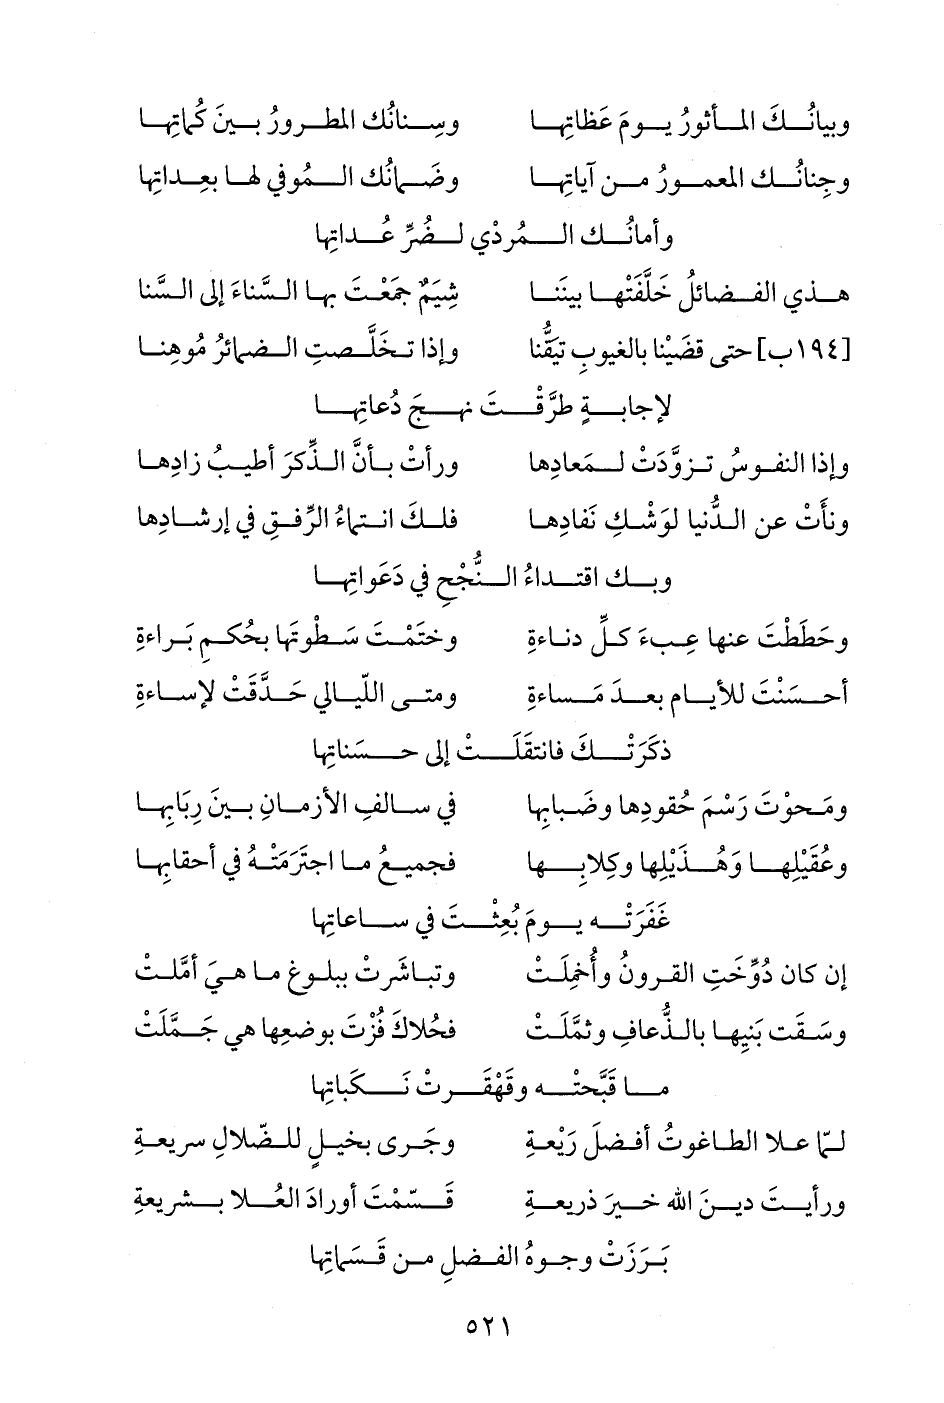 وبيانُك المأثورُ يومَ عَظاتِها وسِنانُك المطرورُ بينَ كُماتِها
وجنانُك المعمورُ من آياتِها وضَمانُك المُوفي لها بعِداتِها
وأمانُك المُرذي لضُرِّ عُداتِها
هذي الفضائلُ خَلَّفَتْها بيننا شِيَمٌ جمَعْتَ بها السَّناءَ إلى السَّنا
[١٩٤ب] حتى قضَيْنا بالغيوبِ تيَقُّنا وإذا تخَلَّصتِ الضمائرُ مُوهِنا
لإجابةٍ طرَّقْتَ نهجَ دُعاتِها
وإذا النفوسُ تزوَّدَتْ لمَعادِها ورأتْ بأنَّ الذِّكرَ أطيبُ زادِها
ونأتْ عن الدُّنيا لوَشْكِ نَفادِها فلكَ انتماءُ الرِّفقِ في إرشادِها
وبك اقتداءُ النُّجْحِ في دَعَواتِها
وحَطَطْتَ عنها عِبءَ كلِّ دناءةٍ وختَمْتَ سَطوتَها بحُكمِ بَراءةِ
أحسَنْتَ للأيامِ بعدَ مَساءةٍ ومتى اللّيالي حَدَّقَتْ لإساءةِ
ذكَرَتْكَ فانتقَلَتْ إلى حسَناتِها
ومحوْتَ رَسْمَ حُقودِها وضَبابِها في سالفِ الأزمانِ بينَ رِبَابِها
وعُقَيْلِها وَهُذَيْلِها وكِلابِها فجميعُ ما اجتَرَمَتْهُ في أحقابِها
غَفَرَتْه يومَ بُعِثْتَ في ساعاتِها
إن كان دُوِّخَتِ القرونُ وأُخمِلَتْ وتباشَرتْ ببلوغِ ما هيَ أمَّلَتْ
وسَقَت بَنِيها بالذُّعافِ وثمَّلَتْ فحُلاكَ فُزْتَ بوضعِها هي جَمَّلَتْ
ما قبَّحتْه وقَهْقَرتْ نَكَباتِها
لمّا علا الطاغوتُ أفضلَ رَيْعةٍ وجَرى بخيلٍ للضّلالِ سريعةِ
ورأيتَ دينَ الله خيرَ ذريعةٍ قسَّمْتَ أورادَ العُلا بشريعةِ
بَرَزَتْ وجوهُ الفضلِ من قَسَماتِها
٥٢١